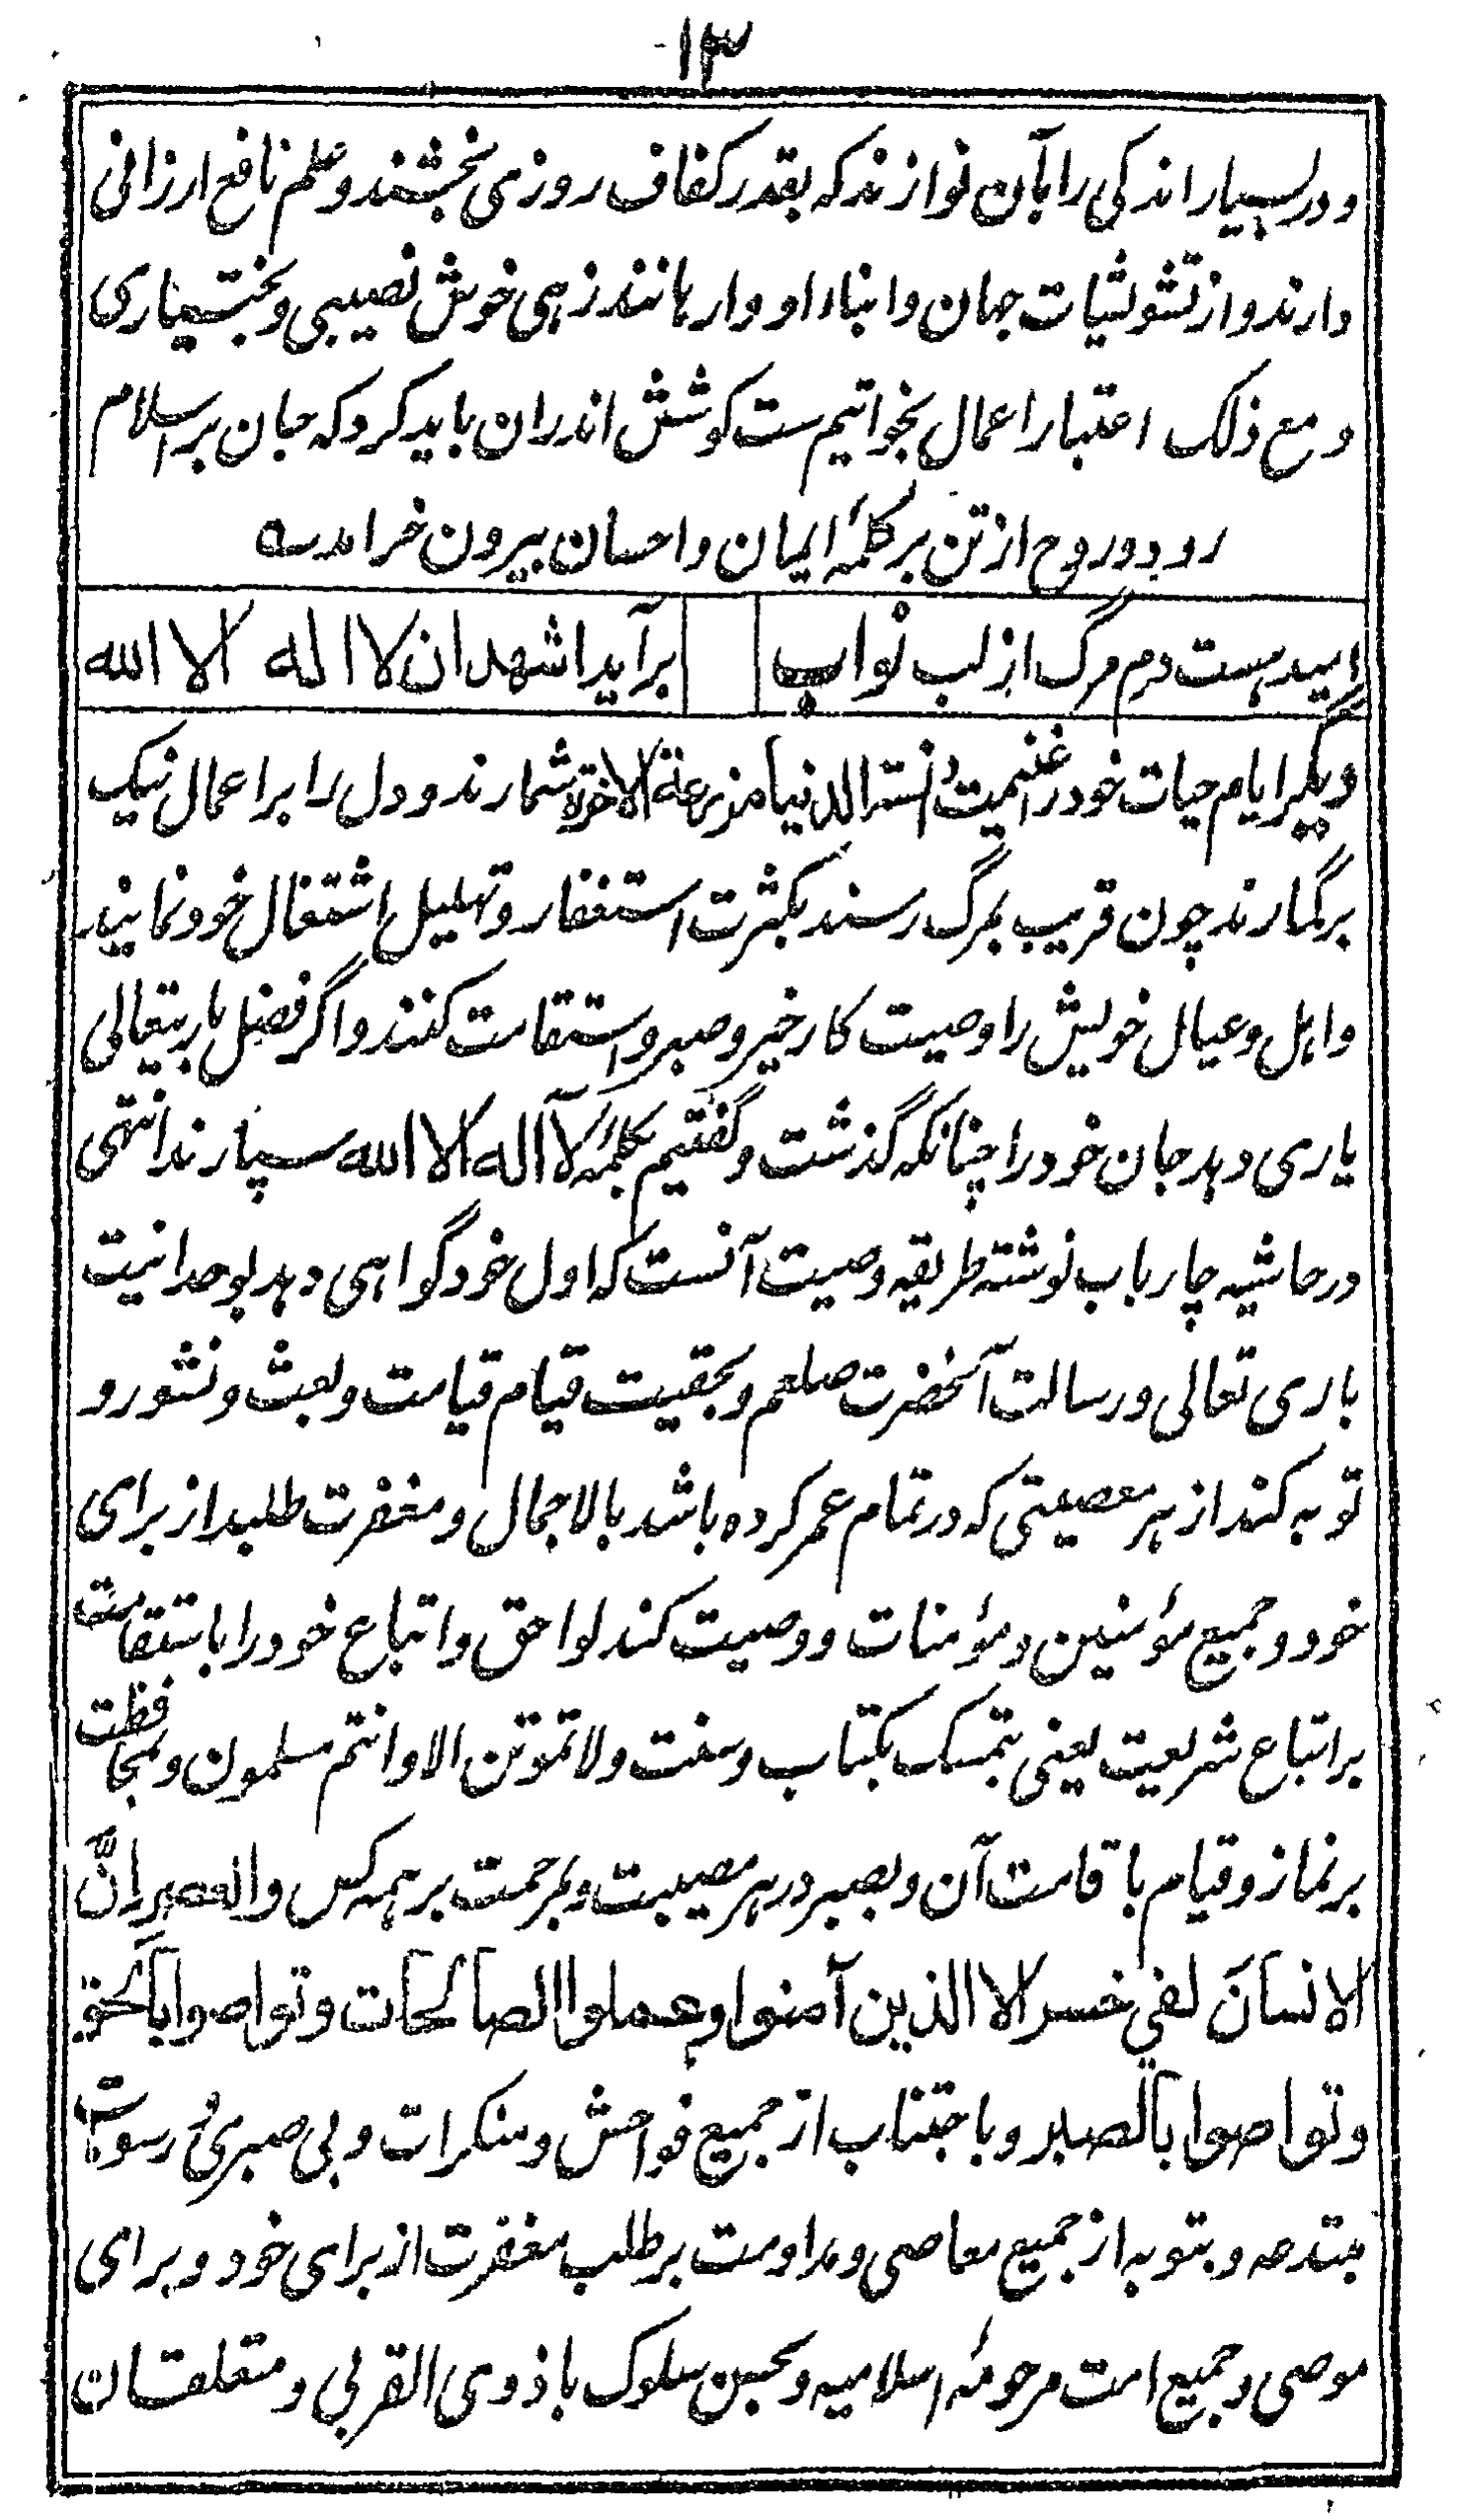 ۱۳
و در بسیار اندکی را بآن نوازند که بقدر کفاف روزی بخشند و علم نافع ارزانی
دارند و از تشویشات جهان و ابناء او وارهانند زهی خوش نصیبی و بختیاری
و مع ذلک اعتبار اعمال بخواتیم ست کوشش اندران باید کرد که جان بر اسلام
رود و روح از تن بر کلمۂ ایمان و احسان بیرون خرامد ؎
امید هست دم مرگ از لب نواب
برآید اشهد ان لا اله الا الله
دیگر ایام حیات خود را غنیمت دانسته الدنیا مزرعة الاخرة شمارند و دل را بر اعمال نیک
برگمارند چون قریب بمرگ رسند بکثرت استغفار و تهلیل اشتغال خود نمایند
و اهل و عیال خویش را وصیت کار خیر و صبر و استقامت کنند و اگر فضل باریتعالی
یاری دهد جان خود را چنانکه گذشت و گفتیم بکلمۂ لا آله الا الله سپارند انتهی
در حاشیه چار باب نوشته طریقه وصیت آنست که اول خود گواهی دهد بوحدانیت
باری تعالی و رسالت آنحضرت صلعم و بحقیت قیام قیامت و بعث و نشور و
توبه کند از هر معصیتی که در تمام عمر کرده باشد بالاجمال و مغفرت طلبد از برای
خود و جمیع مؤمنین و مؤمنات و وصیت کند لواحق و اتباع خود را باستقامت
بر اتباع شریعت یعنی بتمسک بکتاب و سنت ولا تموتن الا وانتم مسلمون و بمحافظت
بر نماز و قیام باقامت آن و بصبر در هر مصیبت و بمرحمت بر همه کس والعصر انّ
الانسانَ لفی خسر الا الذین آمنوا وعملوا الصالحات وتواصوا بالحق
وتواصوا بالصبر و باجتناب از جمیع فواحش و منکرات و بی صبری و رسومات
مبتدعه و بتوبه از جمیع معاصی و مداومت بر طلب مغفرت از برای خود و برای
موصی و جمیع امت مرحومۂ اسلامیه و بحسن سلوک با ذوی القربی و متعلقان